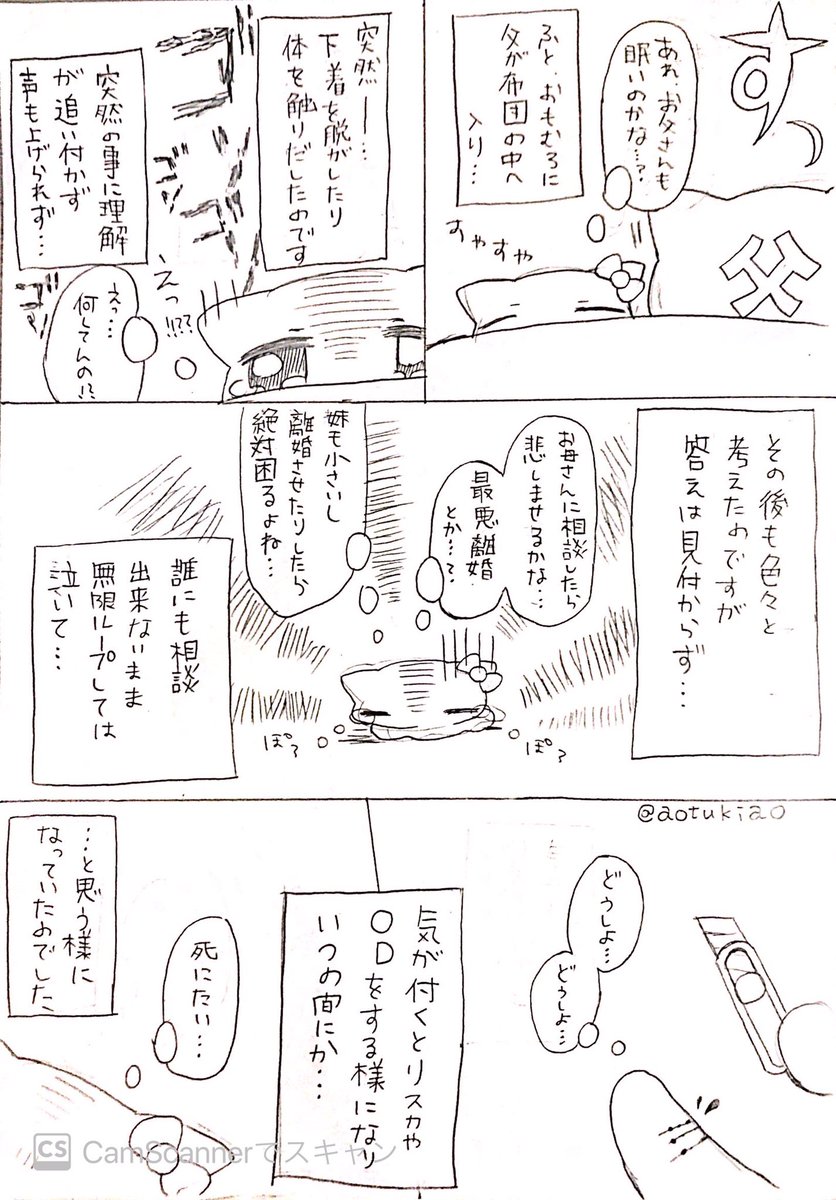 す
あれ、お父さんも
眠いのかな…?
ふと、おもむろに
父が布団の中へ
入り…
父
すやすや
突然――…
下着を脱がしたり
体を触りだしたのです
突然の事に理解
が追い付かず
声も上げられず…
えっ!!??
えっ…
何してんの!?
その後も色々と
考えたのですが
答えは見付からず…
お母さんに相談したら
悲しませるかな…
最悪離婚
とか…?
妹も小さいし
離婚させたりしたら
絶対困るよね…
誰にも相談
出来ないまま
無限ループしては
泣いて…
ぽろ
ぽろ
@aotukiao
どうしよ…
どうしよ…
気が付くとリスカや
ODをする様になり
いつの間にか…
死にたい…
…と思う様に
なっていたのでした
CS CamScannerでスキャン